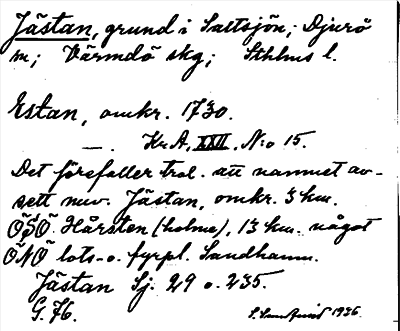 Jästan, grund i Saltsjön; Djurö
sn; Värmdö skg; Sthlms l.
Estan, omkr. 1730.
— . Kr A, XXII, N:o 15.
Det förefaller trol. att namnet av-
sett nuv. Jästan, omkr. 3 km.
ÖSÖ Hårsten (holme), 13 km. något
ÖNÖ lots- o. fyrpl. Sandhamn.
Jästan Sj. 29 o. 235.
G. 76. 1926